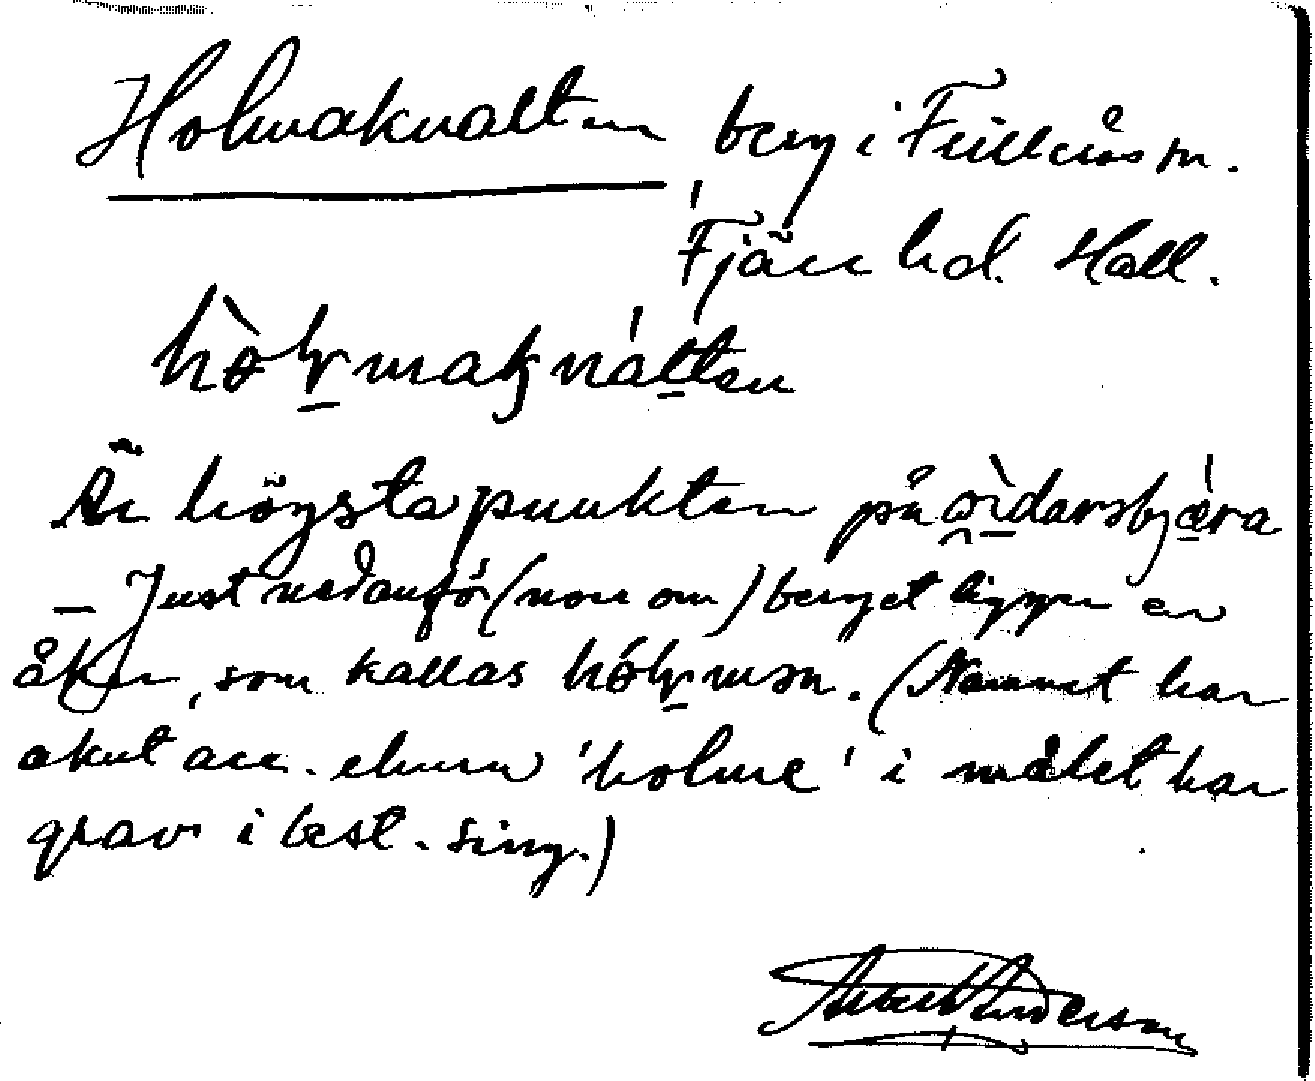 Holmaknatten berg i Fjällers sn.
Fjäre hd. Hall.
hòḷmaknátten
Är högsta punkten på
— Just nedanför (norr om) berget ligger en
åker, som kallas hóḷmən. (Namnet har
akut acc. ehuru 'holme' i målet har
grav i best. sing.)
Albert Anderson